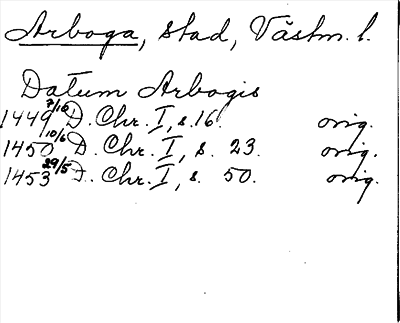 Arboga, stad, Västm. l.
Datum Arbogis
1449 7/10 D. Chr. I, s. 16. orig.
1450 10/6 D. Chr. I, s. 23. orig.
1453 29/5 D. Chr. I, s. 50. orig.